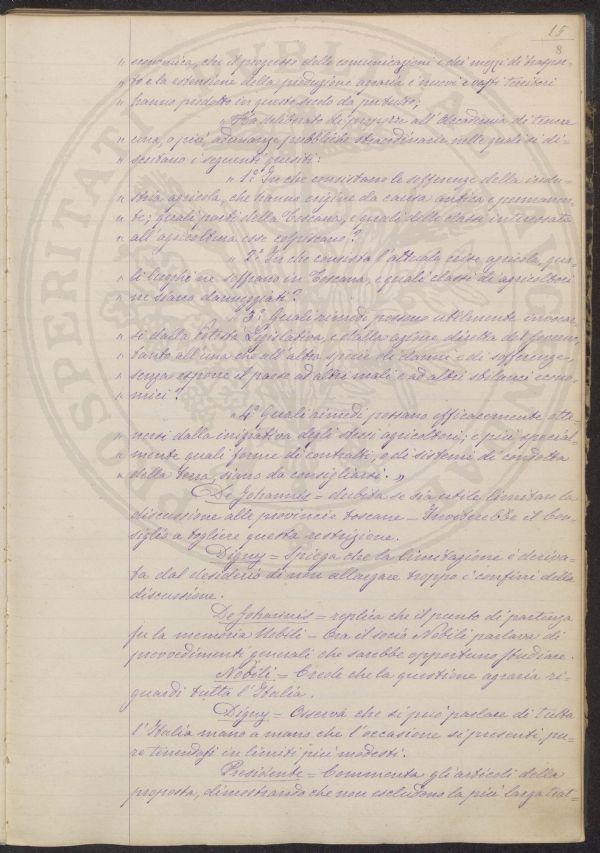 15
8
" conomica, che il progresso delle comunicazioni e dei mezzi di traspor-
" to e la estensione della produzione agraria e nuovi e vasti territori
" hanno prodotto in questo secolo da per tutto;
" Ha deliberato di proporre all'Accademia di tenere
" una, o più, adunanze pubbliche straordinarie nelle quali si di-
" scutano i seguenti quesiti:
" 1° In che consistano le sofferenze della indu-
" stria agricola, che hanno origine da cause antica e permanen-
" te; quali parti della Toscana, e quali delle classi interessate
" all'agricoltura esse colpiscano?
" 2° In che consista l'attuale crise agricola, qua-
" li luoghi ne soffrano in Toscana, e quali classi di agricoltori
" ne siano danneggiati?
" 3° Quali rimedi possano utilmente invocar-
" si dalla Potestà Legislativa, e dalla azione diretta del Governo,
" tanto all'una che all'altra specie di danni e di sofferenze,
" senza esporre il paese ad altri mali e ad altri sbilanci econo-
" mici?
" 4° Quali rimedi possano efficacemente otte-
" nersi dalla iniziativa degli stessi agricoltori; e più special-
" mente quali forme di contratti, o di sistemi di condotta
" della terra, siano da consigliarsi. "
De Johannis = dubita se sia utile limitare la
discussione alle provincie toscane – Inviterebbe il Con-
siglio a togliere questa restrizione.
Digny = Spiega che la limitazione è deriva-
ta dal desiderio di non allargare troppo i confini della
discussione.
De Johannis = replica che il punto di partenza
fu la memoria Nobili – Ora il socio Nobili parlava di
provvedimenti generali che sarebbe opportuno studiare.
Nobili = Crede che la questione agraria ri-
guardi tutta l'Italia.
Digny = Osserva che si può parlare di tutta
l'Italia mano a mano che l'occasione si presenti, pu-
re tenendosi in limiti più modesti.
Presidente = Commenta gli articoli della
proposta, dimostrando che non escludono la più larga trat-